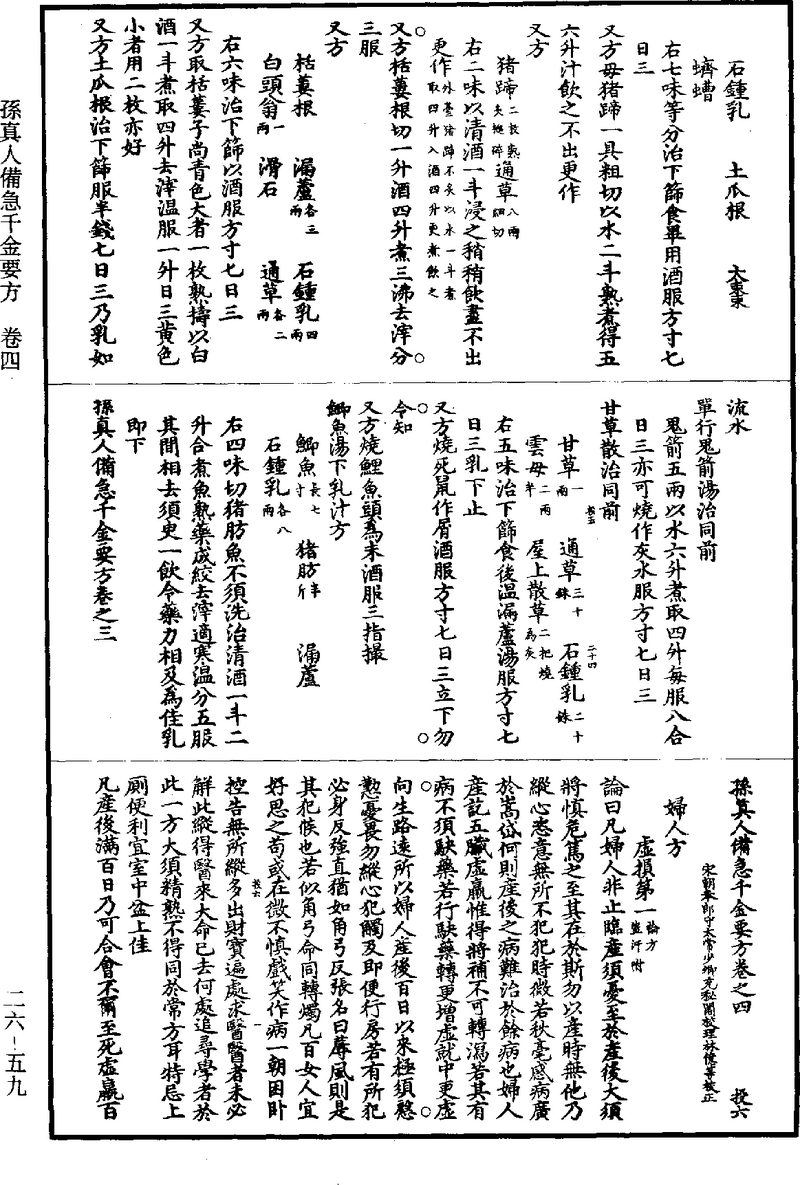 孫真人備急千金要方　卷四
二六－五九
石鍾乳　土瓜根　大棗
蠐螬
右七味等分治下篩食畢用酒服方寸匕
日三
又方母猪蹄一具粗切以水二斗熟煮得五
六升汁飲之不出更作
又方
猪蹄二枚熟炙搥碎通草八兩細切
右二味以清酒一斗浸之稍稍飲盡不出
更作外臺猪蹄不炙以水一斗煮取四升入酒四升更煮飲之
又方栝蔞根切一升酒四升煮三沸去滓分
三服
又方
栝蔞根　漏蘆各三兩　石鍾乳四兩
白頭翁一兩　滑石　通草各二兩
右六味治下篩以酒服方寸匕日三
又方取栝蔞子尚青色大者一枚熟擣以白
酒一斗煮取四升去滓温服一升日三黄色
小者用二枚亦好
又方土瓜根治下篩服半錢匕日三乃乳如
流水
單行鬼箭湯治同前
鬼箭五兩以水六升煮取四升每服八合
日三亦可燒作灰水服方寸匕日三
甘草散治同前
甘草一兩　通草三十銖　石鍾乳二十銖
雲母二兩半　屋上散草二把燒為灰
右五味治下篩食後温漏蘆湯服方寸匕
日三乳下止
又方燒死鼠作屑酒服方寸匕日三立下勿
令知
又方燒鯉魚頭為末酒服三指撮
鯽魚湯下乳汁方
鯽魚長七寸　猪肪半斤　漏蘆
石鍾乳各八兩
右四味切猪肪魚不須洗治清酒一斗二
升合煮魚熟藥成絞去滓適寒温分五服
其間相去須臾一飲令藥力相及為佳乳
即下
孫真人備急千金要方卷之三
孫真人備急千金要方卷之四　投六
宋朝奉郎守太常少卿充秘閣校理林億等校正
婦人方
虚損第一論方並汗附
論曰凡婦人非止臨産須憂至於産後大須
將慎危篤之至其在於斯勿以産時無他乃
縱心恣意無所不犯犯時微若秋毫感病廣
於嵩岱何則産後之病難治於餘病也婦人
産訖五臓虚羸惟得將補不可轉瀉若其有
病不須駃藥若行駃藥轉更增虚就中更虚
向生路遠所以婦人産後百日以來極須慇
懃憂畏勿縱心犯觸及即便行房若有所犯
必身反強直猶如角弓反張名曰蓐風則是
其犯候也若似角弓命同轉燭凡百女人宜
好思之苟或在微不慎戲笑作病一朝困卧
控告無所縱多出財寶遍處求醫醫者未必
解此縱得醫來大命已去何處追尋學者於
此一方大須精熟不得同於常方耳特忌上
厠便利宜室中盆上佳
凡産後滿百日乃可合會不爾至死虚羸百